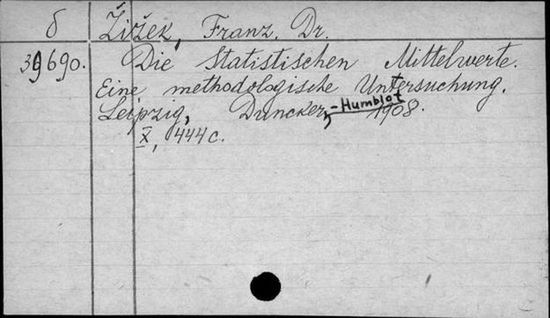 б Žižek, Franz, Dr.
39690. Die Statistischen Mittelwerte.
Eine methodologische Untersuchung.
Leipzig, Duncker-Humblot, 1908.
X, 444 c.